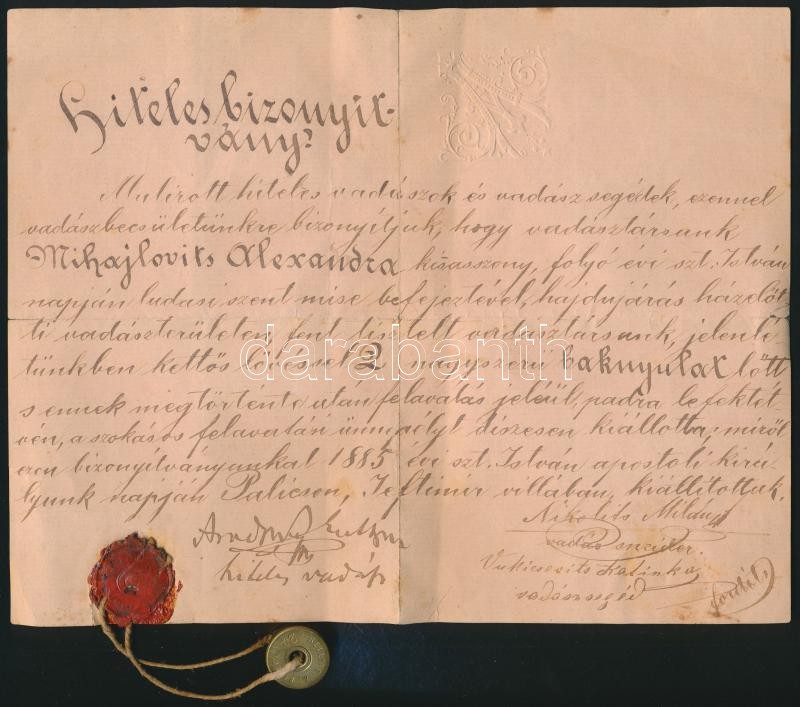 Hitelesbizonyit-
vány?
Mulirott hiteles vadászok és vadász segédek, ezennel
vadászbecsületünkre bizonyítjuk, hogy vadásztársunk
Mihajlovits Alexandra kisasszony, folyó évi szt. István
napján ludasi szent mise befejeztével, hajdujárás házelőt-
ti vadászterületen, fent tisztelt vadásztársunk, jelenlé
tünkben kettős lövéssel 2 nagyszerű baknyulat lőtt
s ennek megtörténte után felavatás jeléül, padra lefektet-
vén, a szokásos felavatási ünnepélyt díszesen kiállotta; miről
ezen bizonyítványunkat 1885 évi szt. István apostoli kirá-
lyunk napján Palicson, Jeftimir villában, kiállítottuk.
Nikolits Milán
hiteles vadász
Vukicsevits Katinka
vadászsegéd
fordíts
darabanth